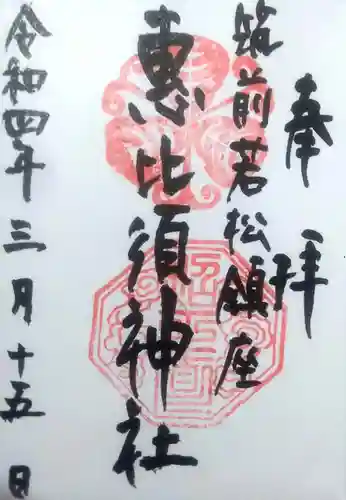 奉拝
筑前若松鎮座
恵比須神社
令和四年三月十五日